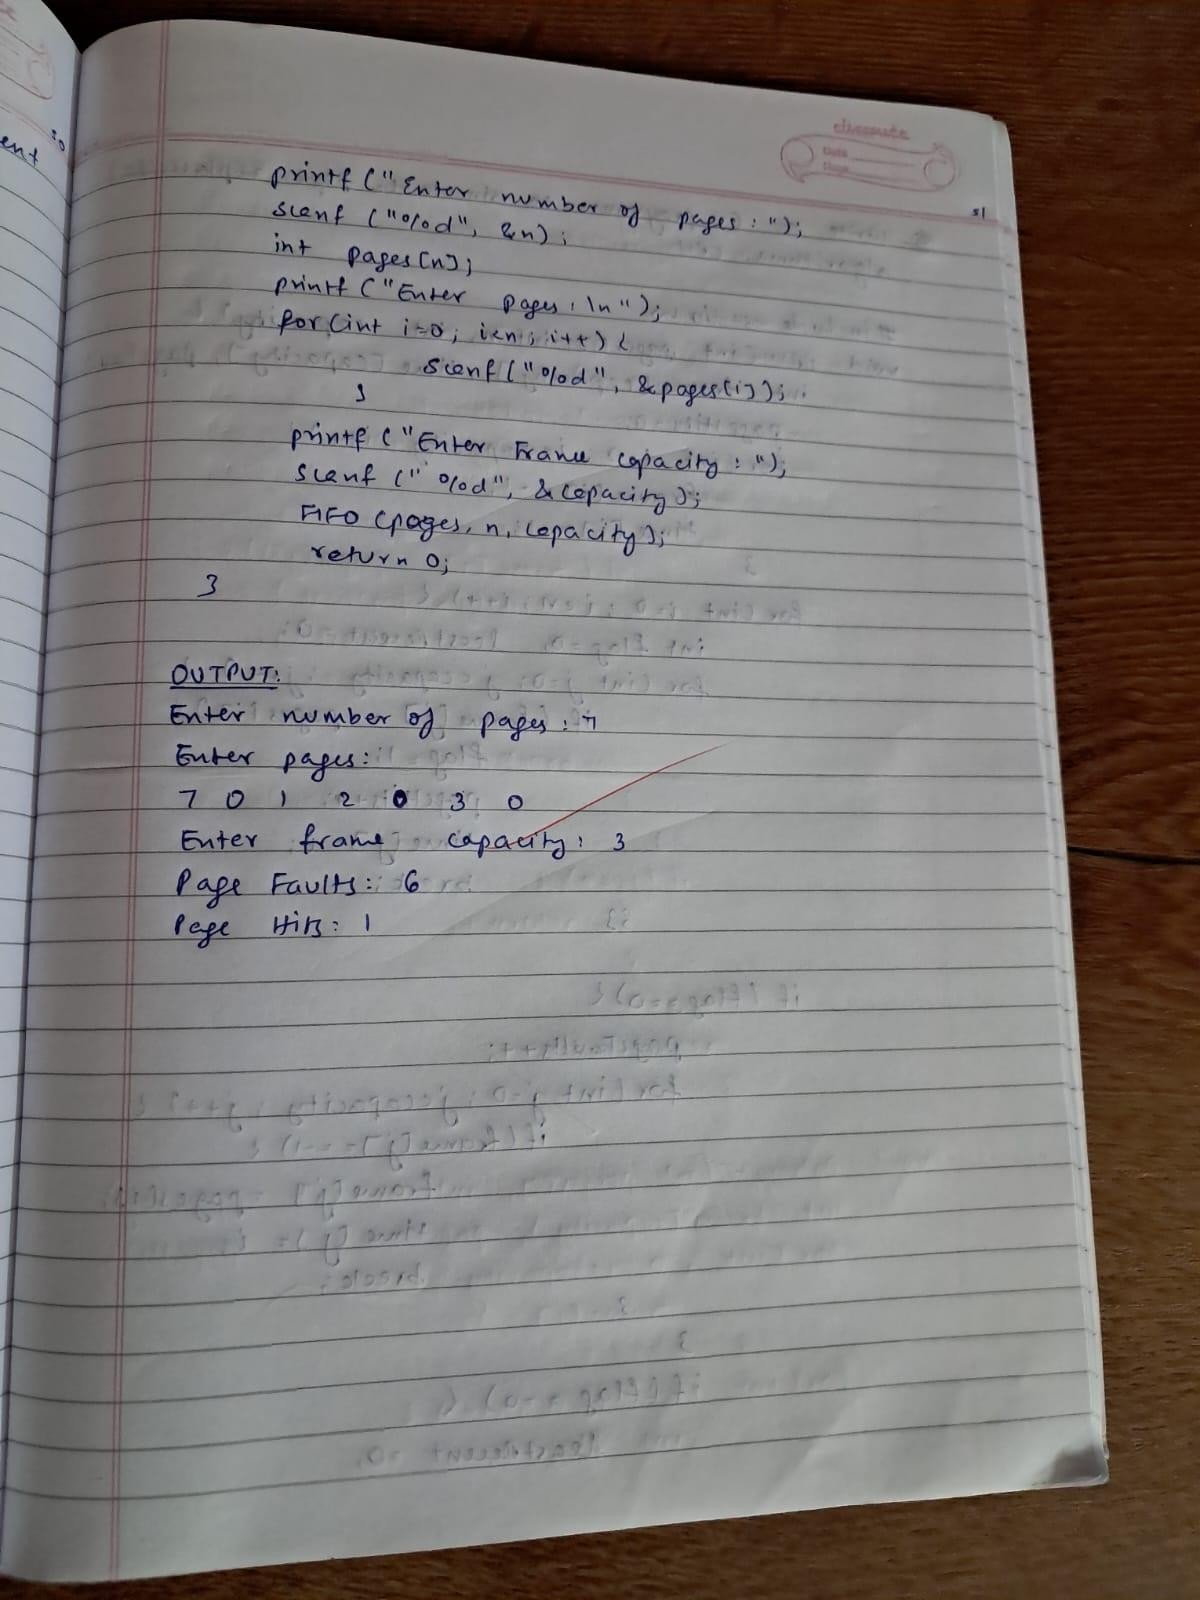 ent
50
classmate
Date
Page
51
printf ("Enter number of pages : ");
scanf ("%d", &n);
int pages[n];
printf ("Enter pages : \n");
for (int i=0; i<n; i++) {
scanf ("%d", &pages[i]);
}
printf ("Enter Frame capacity : ");
scanf ("%d", &capacity);
FIFO (pages, n, capacity);
return 0;
}
OUTPUT:
Enter number of pages : 7
Enter pages :
7 0 1 2 0 3 0
Enter frame capacity : 3
Page Faults : 6
Page Hits : 1